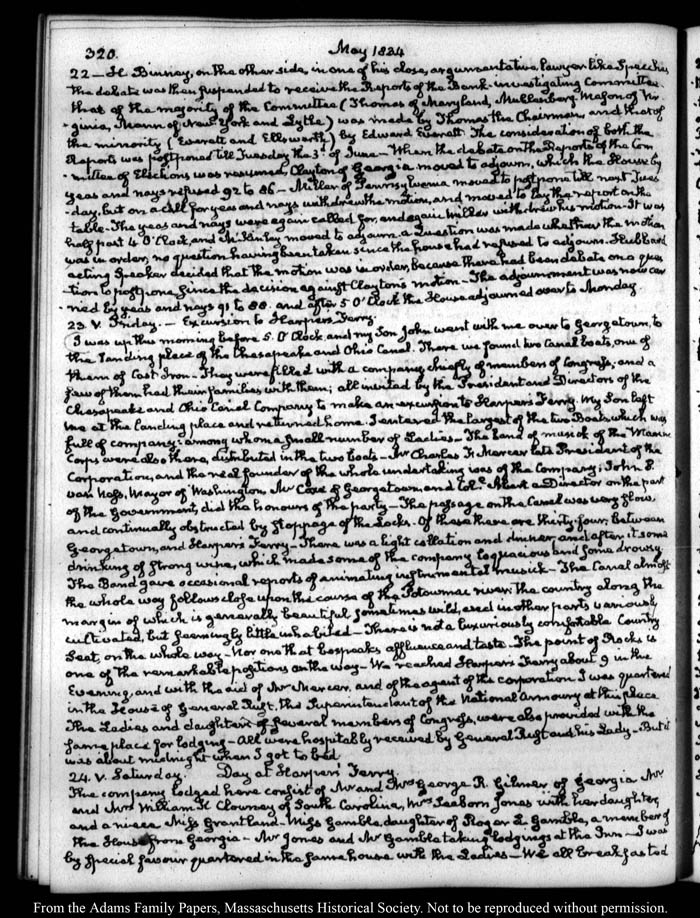 320. May 1834
22 — H. Binney, on the other side, in one of his close, argumentative lawyer like Speeches
the debate was then suspended to receive the Reports of the Bank-investigating Committee.
that of the majority of the Committee (Thomas of Maryland, Muhlenberg, Mason of Vir-
-ginia, Mann of New York and Lytle) was made by Thomas the Chairman, and that of
the minority (Everett and Ellsworth) by Edward Everett. The consideration of both the
Reports was postponed till Tuesday the 3d of June — When the debate on the Reports of the Com
-mittee of Elections was resumed, Clayton of Georgia moved to adjourn, which the House by
yeas and nays refused 92 to 86 — Miller of Pennsylvania moved to postpone till next Tues
-day, but on a call for yeas and nays withdrew the motion, and moved to lay the report on the
table. The yeas and nays were again called for, and again Miller withdrew his motion. It was
half past 4 O'Clock, and McKinley moved to adjourn. a Question was made whether the motion
was in order, no question having been taken since the house had refused to adjourn. Hubbard
acting Speaker decided that the motion was in order, because there had been debate on a ques
-tion to postpone, since the decision against Clayton's motion — The adjournment was now car
-ried by yeas and nays 91 to 88. and after 5 O'Clock the House adjourned over to Monday.
23 V. Friday. — Excursion to Harpers Ferry.
I was up this morning before 5. O'Clock and my Son John went with me over to Georgetown, to
the landing place of the Chesapeake and Ohio Canal. There we found two Canal boats, one of
them of Cast Iron — They were filled with a company, chiefly of members of Congress, and a
few of them had their families with them; all invited by the President and Directors of the
Chesapeake and Ohio Canal Company to make an excursion to Harpers Ferry. My Son left
me at the landing place and returned home. I entered the largest of the two Boats, which was
full of company: among whom a small number of Ladies — The band of musick of the Marine
Corps were also there, distributed in the two boats — Mr Charles F. Mercer late President of the
Corporation, and the real founder of the whole undertaking was of the Company; John P.
van Ness, Mayor of Washington, Mr Coxe of Georgetown, and Col. Abert a Director on the part
of the Government, did the honours of the party — The passage on the Canal was very slow
and continually obstructed by stoppage of the Locks. Of these there are thirty four, between
Georgetown, and Harpers Ferry — There was a light collation and dinner, and after it some
drinking of strong wine, which made some of the company loquacious and some drowsy
The Band gave occasional reports of animating instrumental musick — The Canal almost
the whole way follows close upon the course of the Potowmac river. the country along the
margin of which is generally beautiful, sometimes wild, and in other parts variously
cultivated, but seemingly little inhabited — There is not a luxuriously comfortable Country
Seat, on the whole way — Nor one that bespeaks affluence and taste — The point of Rocks is
one of the remarkable positions on the way — We reached Harpers Ferry about 9 in the
Evening, and with the aid of Mr Mercer, and of the agent of the corporation I was quartered
in the House of General Rust, the Superintendent of the National Armoury at this place
The Ladies and daughters of several members of Congress, were also provided with the
same place for lodging — All were hospitably received by General Rust and his Lady — But it
was about midnight when I got to bed.
24. V. Saturday. Day at Harpers Ferry.
The company lodged here consist of Mr and Mrs George R. Gilmer of Georgia Mr
and Mrs William K Clowney of South Carolina, Mrs Seaborn Jones with her daughter,
and a niece Miss Grantland — Miss Gamble, daughter of Roger L Gamble, a member of
the House from Georgia — Mr Jones and Mr Gamble taking lodgings at the Inn — I was
by special favour quartered in the same house with the Ladies — We all breakfasted
From the Adams Family Papers, Massachusetts Historical Society. Not to be reproduced without permission.